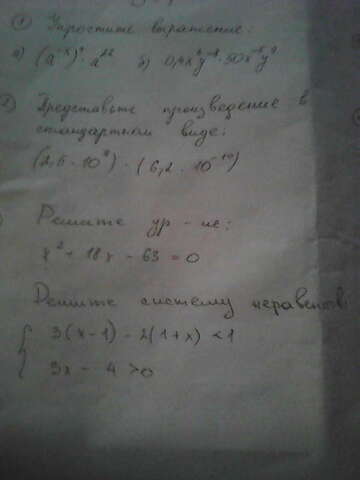 ① Упростите выражение:
а) (a⁻ˣ)⁹ · a²² б) 0,4x⁶y⁻⁸ · 50x⁻⁵y⁹
② Представьте произведение в
стандартном виде:
(2,6 · 10⁸) · (6,2 · 10⁻¹⁰)
Решите ур-ие:
x² + 18x - 63 = 0
Решите систему неравенств
3(x-1) - 2(1+x) < 1
3x - 4 > 0